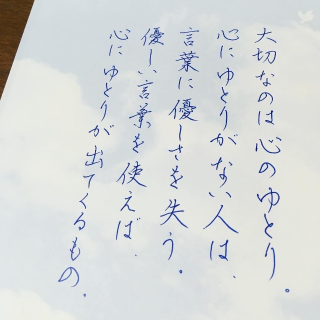 大切なのは心のゆとり。
心にゆとりがない人は、
言葉に優しさを失う。
優しい言葉を使えば、
心にゆとりが出てくるもの。